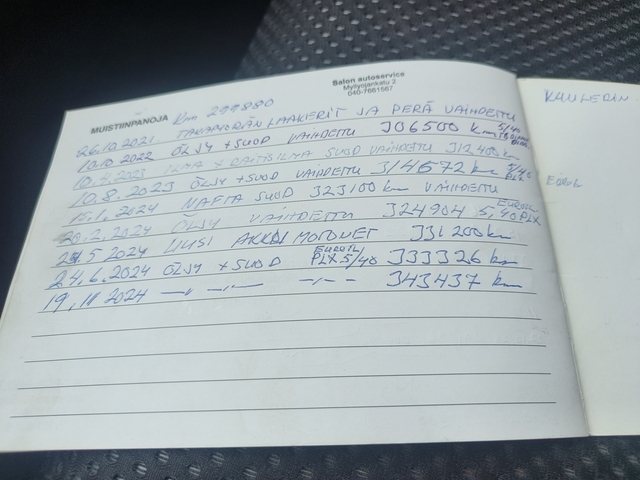 Salon autoservice
Myllyojankatu 2
040-7661567
MUISTIINPANOJA Km 299880
26.10.2021 TAKAPYÖRÄN LAAKERIT JA PERÄ VAIHDETTU
10.10 2022 ÖLJY + SUOD VAIHDETTU 306500 km 5/40
10.4.2023 ILMA + RAITISILMA SUOD VAIHDETTU 312400 km
10.8.2023 ÖLJY + SUOD VAIHDETTU 314672 km 5/40 PLX
15.1.2024 NAFTA SUOD 323100 km VAIHDETTU
20.2.2024 ÖLJY VAIHDETTU 324904 EUROIL 5/40 PLX
5 2024 UUSI AKKU MOTONET 331200 km
24.6.2024 ÖLJY + SUOD EUROIL PLX 5/40 333326 km
19.11 2024 —"— —"— —"— 343437 km